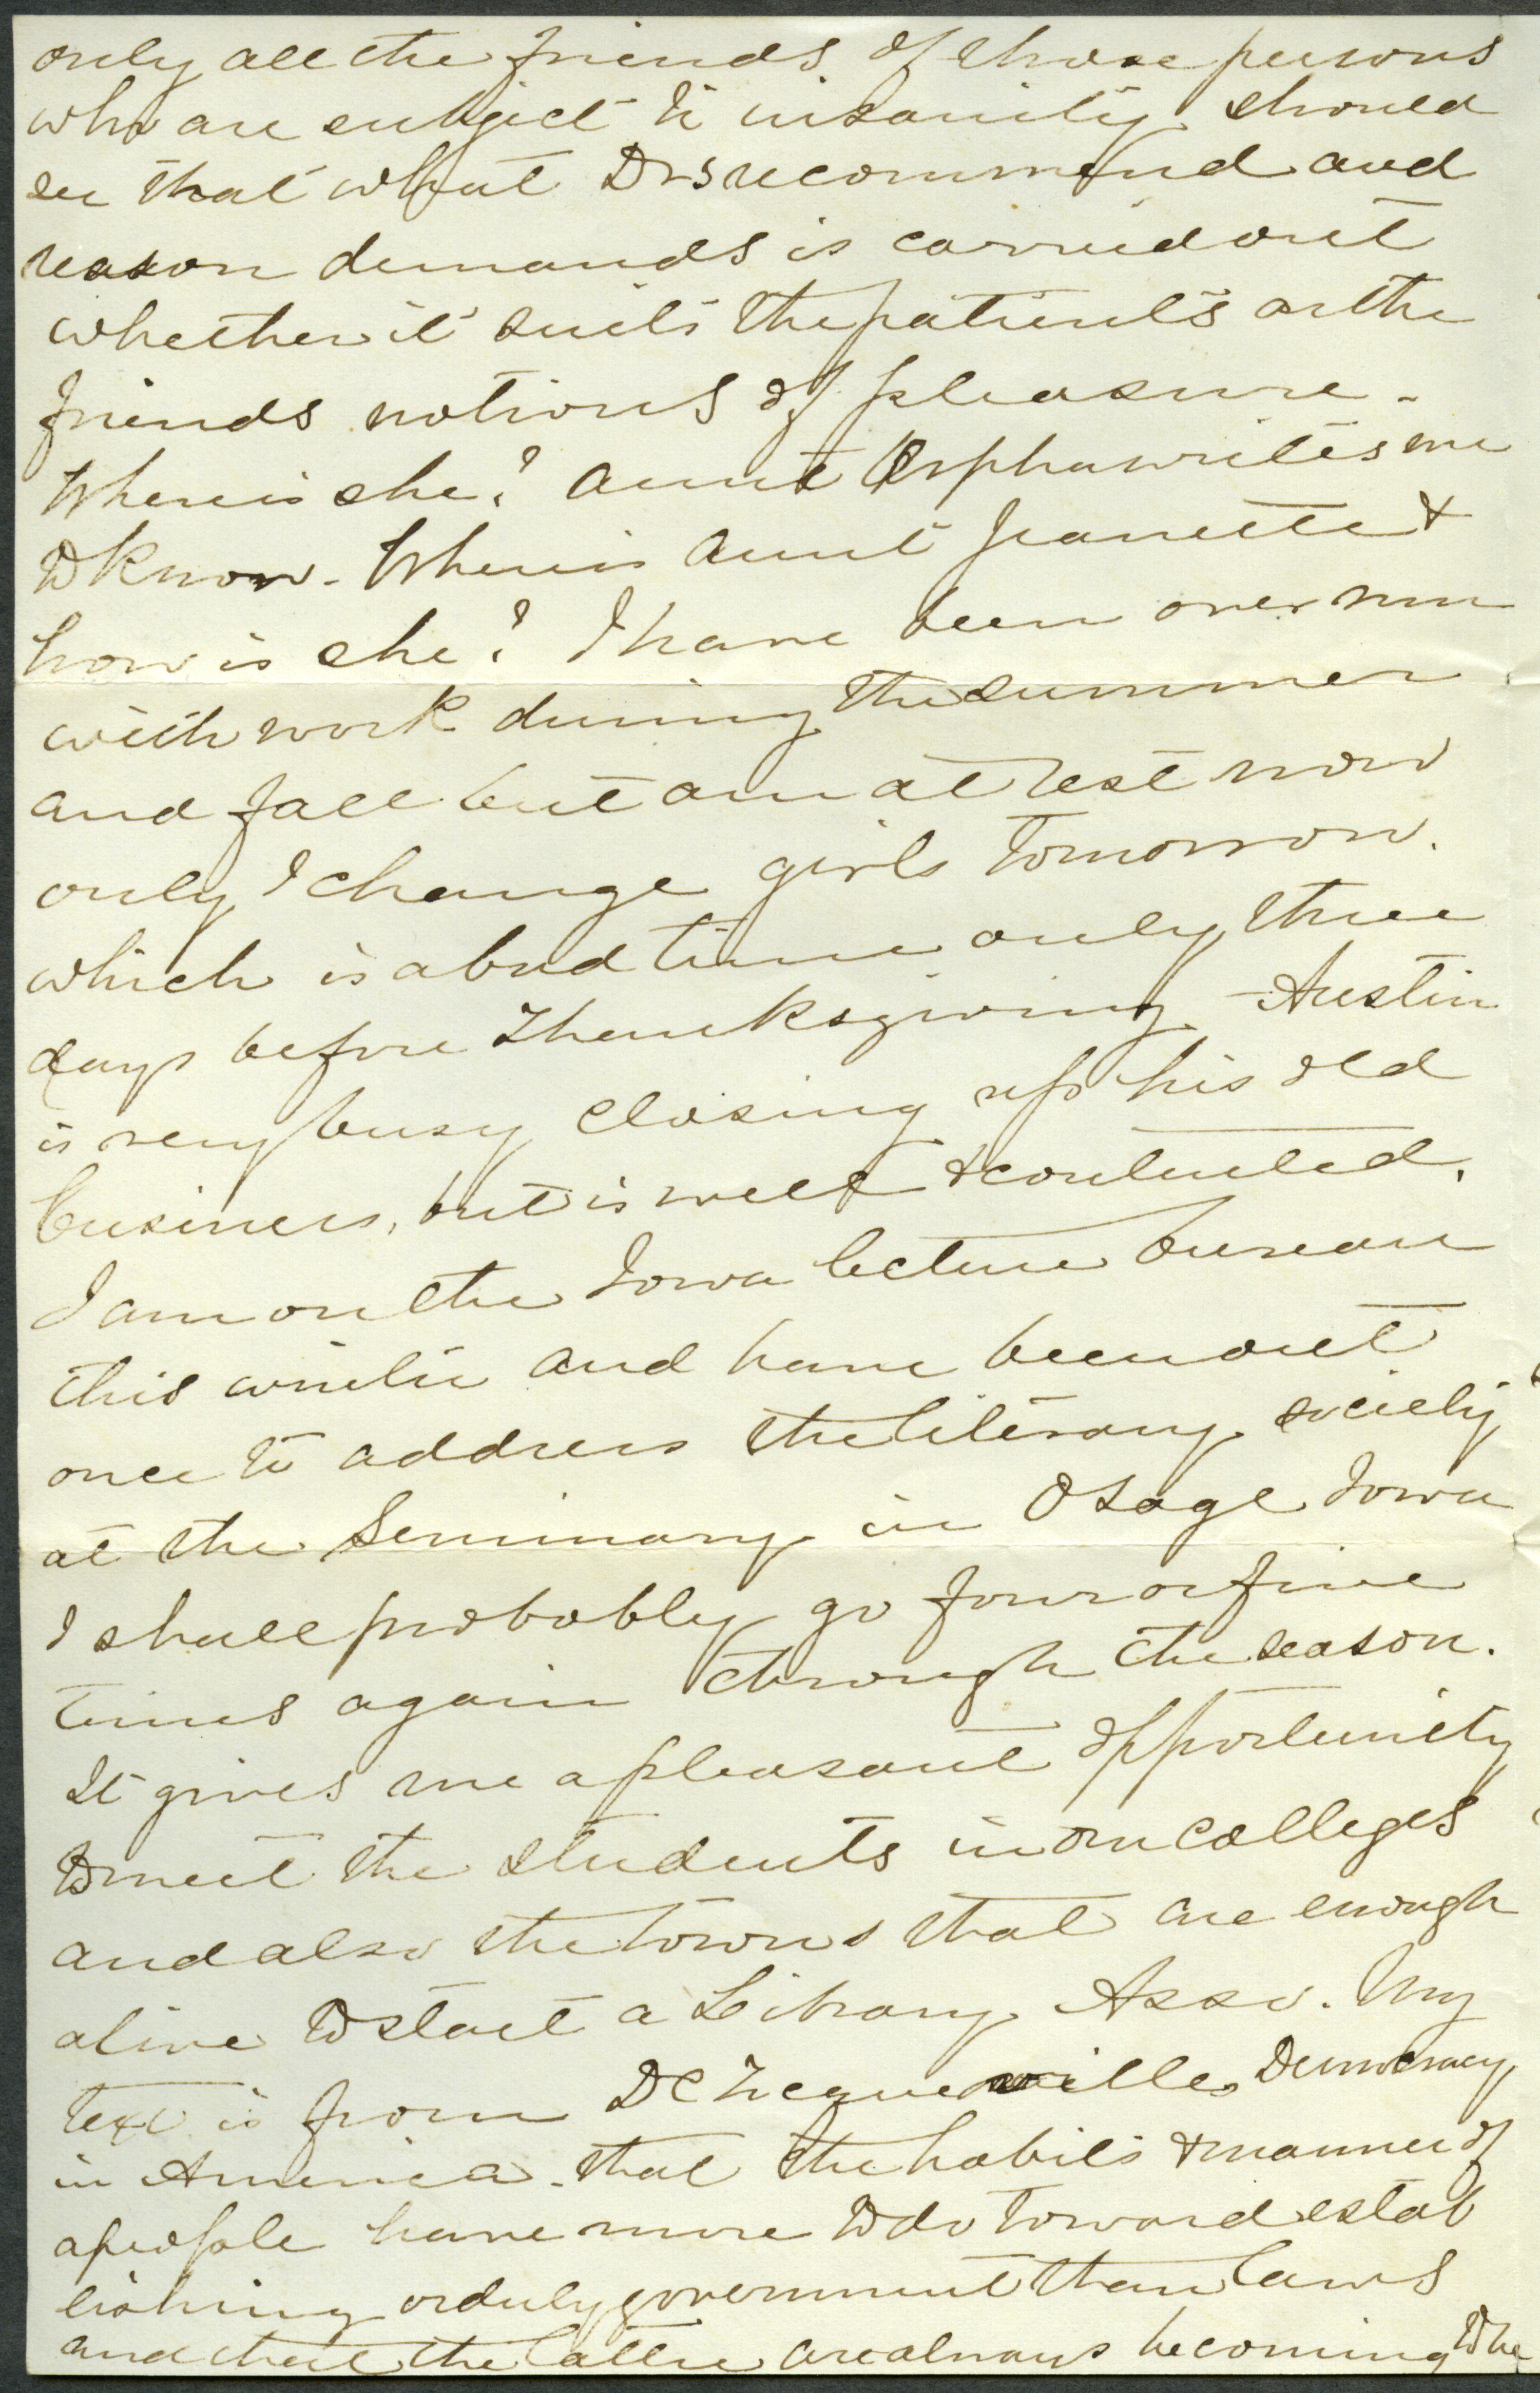 only all the friends of those persons
who are subject to insanity should
see that what Drs recommend and
reason demands is carried out
whether it suits the patients or the
friends notions of pleasure.
Where is she? Aunt Orpha writes me
to know. Where is Aunt Jeanette &
how is she? I have been over run
with work during the summer
and fall but am at rest now
only I change girls tomorrow.
which is a bad time only three
days before Thanksgiving - Austin
is very busy closing up his old
business, but is well & contented.
I am on the Iowa lecture bureau
this winter and have been out
once to address the literary society
at the Seminary in Osage Iowa
I shall probably go four or five
times again through the season.
It gives me a pleasant opportunity
to meet the students in our colleges
and also the towns that are enough
alive to start a Library Asso. My
text is from De Tocqueville Democracy
in America. that the habits & manner of
a people have more to do toward estab
lishing orderly government than laws
and that the latter are always becoming the